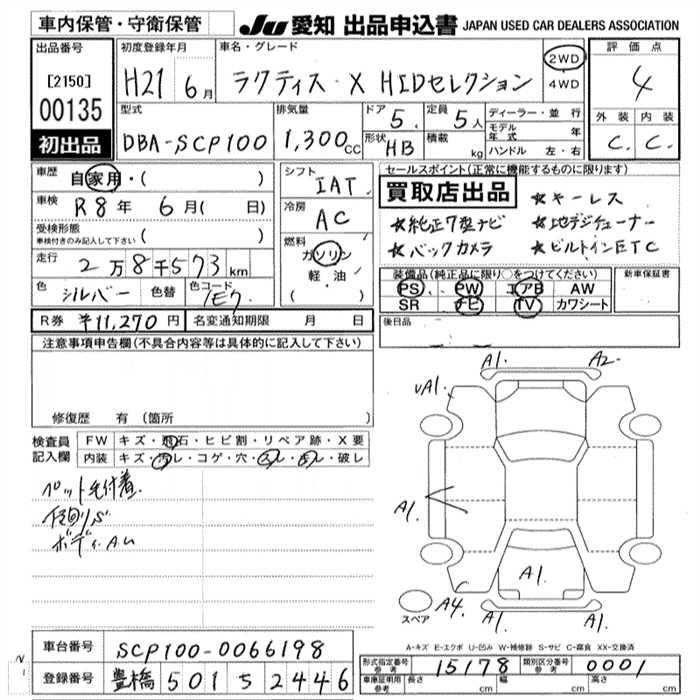 車内保管・守衛保管
JU 愛知 出品申込書 JAPAN USED CAR DEALERS ASSOCIATION
出品番号
[2150]
00135
初出品
初度登録年月
H21 6月
車名・グレード
ラクティス・X HIDセレクション
2WD
・
4WD
評価点
4
外装 内装
C. C.
型式
DBA-SCP100
排気量
1,300cc
ドア 5.
形状 HB
定員 5人
積載 kg
ディーラー・並行
モデル年式 年
ハンドル 左・右
車歴 自家用・( )
車検 R8年 6月( 日)
受検形態
車検付きのみ記入して下さい ( )
走行 2万8千573km
色 シルバー 色替 色コード 1E7
R券 ¥11,270円 名変通知期限 月 日
シフト IAT
冷房 AC
燃料
ガソリン
軽油
( ・ )
セールスポイント(正常に機能するものに限ります)
買取店出品
☆キーレス
☆純正7型ナビ ☆地デジチューナー
☆バックカメラ ☆ビルトインETC
装備品(純正品に限り○をつけてください)
PS PW エアB AW
SR ナビ TV カワシート
新車保証書
後日品
注意事項申告欄(不具合内容等は具体的に記入して下さい)
修復歴 有(箇所 )
検査員記入欄
FW キズ・飛石・ヒビ割・リペア跡・X要
内装 キズ・汚レ・コゲ・穴・スレ・臭レ・破レ
ペット毛付着.
ボディ.A.U
A1. A2
uA1.
A1.
A1.
A4. A1. A1.
スペア
A-キズ E-エクボ U-凹み W-補修跡 S-サビ C-腐食 XX-交換済
車台番号 SCP100-0066198
登録番号 豊橋 501 ち 2446
形式指定番号 参考 15178 類別区分番号 参考 0001
車庫証明用 参考 長さ cm 幅 cm 高さ cm